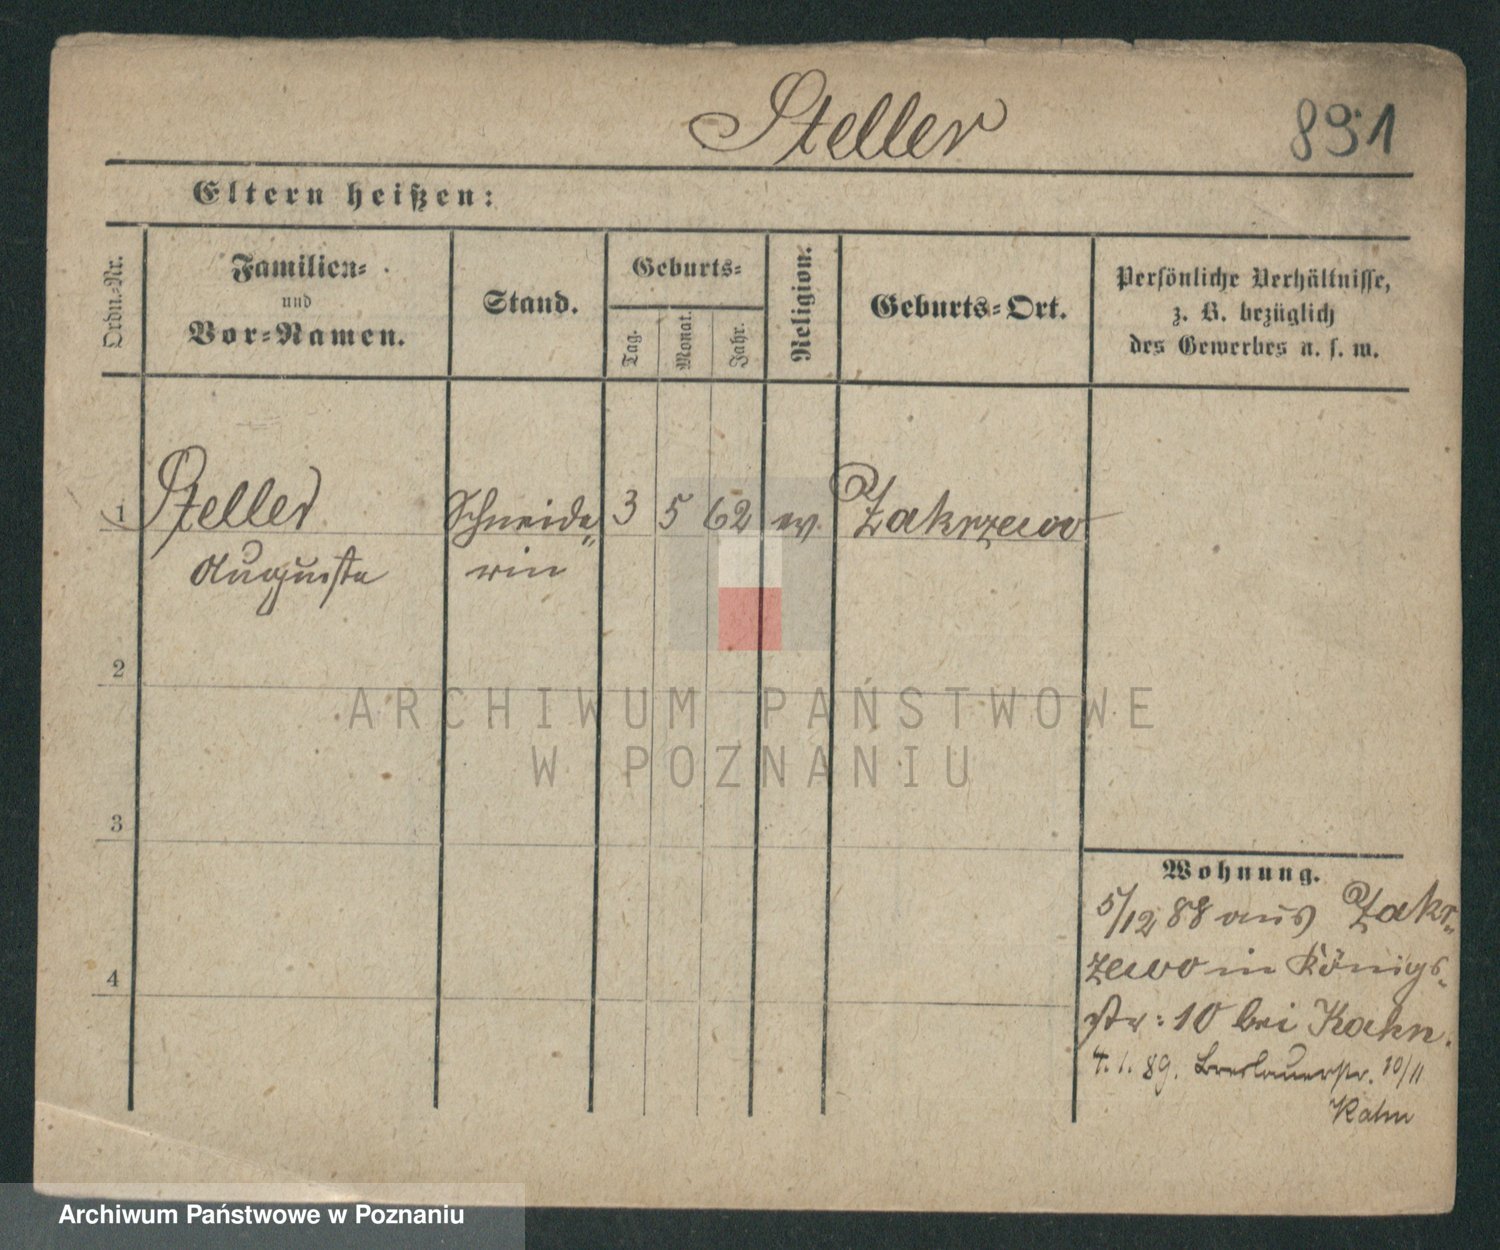 Steller
891
Eltern heißen:
Ordn.-Nr.
Familien-
und
Vor-Namen.
Stand.
Geburts-
Tag.
Monat.
Jahr.
Religion.
Geburts-Ort.
Persönliche Verhältnisse,
z. B. bezüglich
des Gewerbes u. s. w.
1 Steller Schneide- 3 5 62 ev. Zakrzewo
Auguste rin
2
3
4
Wohnung.
5/12 88 aus Zakr-
zewo in Königs-
str: 10 bei Kahn.
4. 1. 89. Breslauerstr. 10/11
Kahn
ARCHIWUM PAŃSTWOWE
W POZNANIU
Archiwum Państwowe w Poznaniu